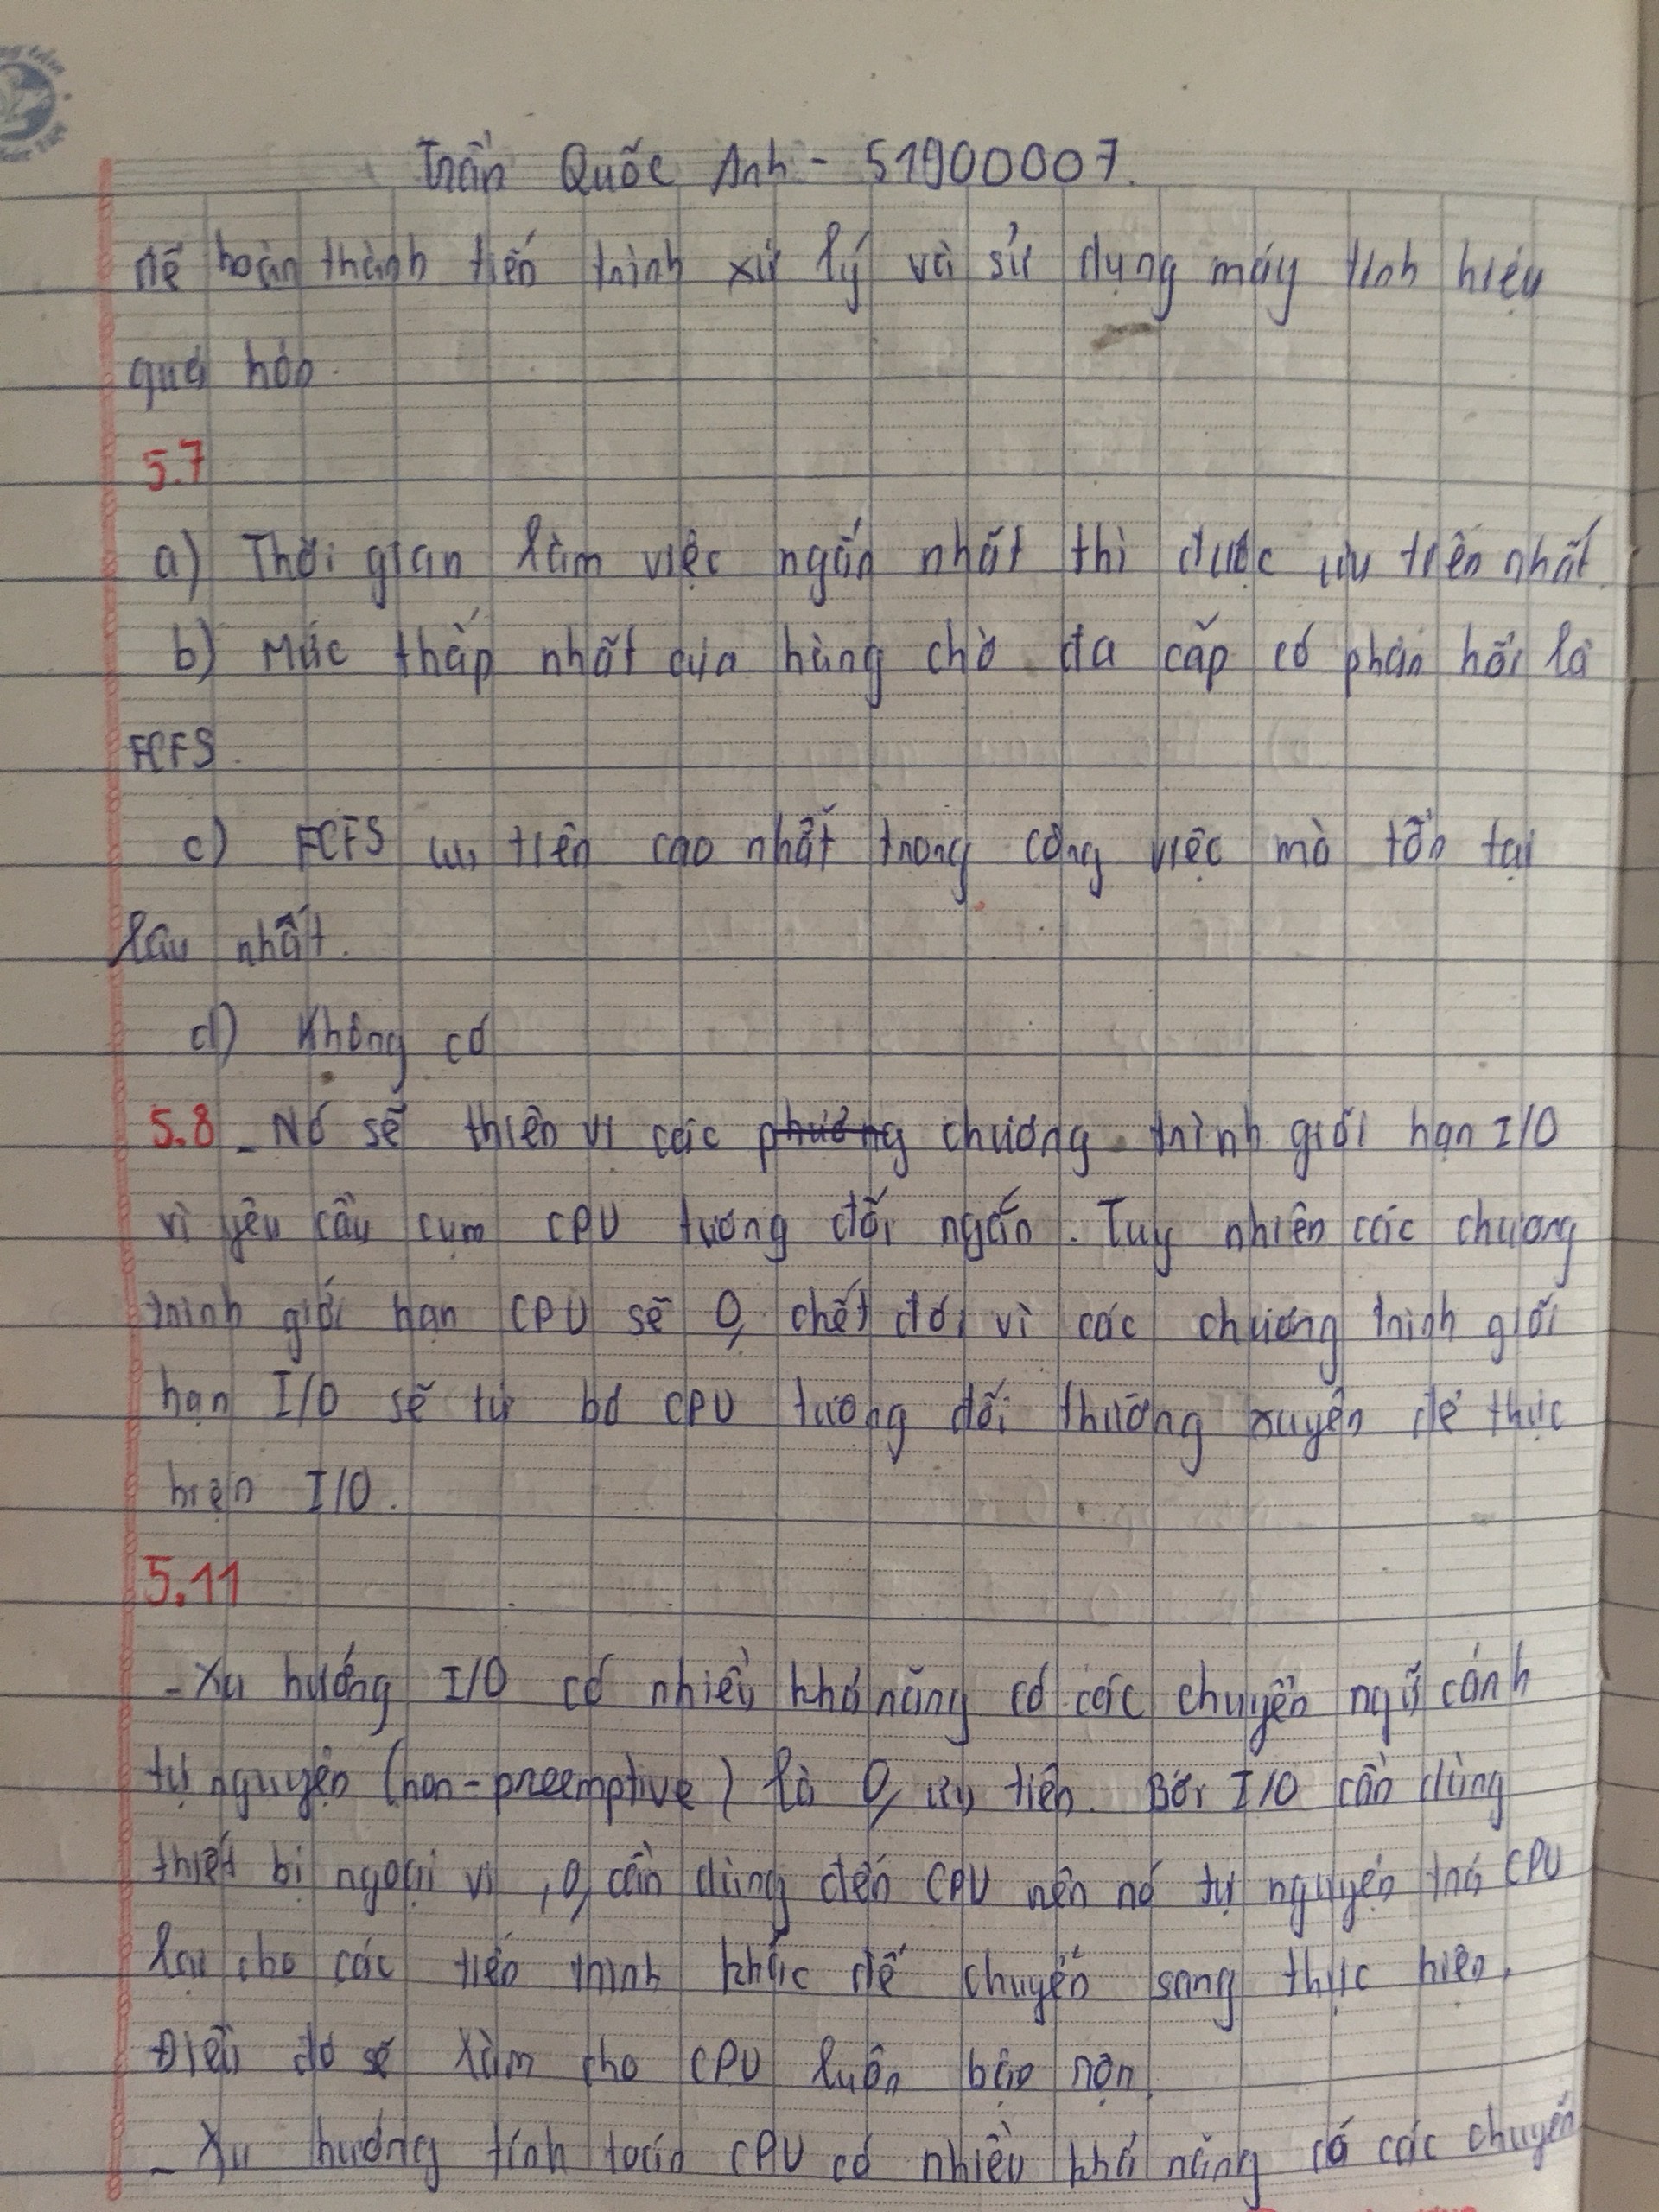 Trần Quốc Anh - 51900007.
để hoàn thành tiến trình xử lý và sử dụng máy tính hiệu
quả hơn.
5.7
a) Thời gian làm việc ngắn nhất thì được ưu tiên nhất.
b) Mức thấp nhất của hàng chờ đa cấp có phản hồi là
FCFS.
c) FCFS ưu tiên cao nhất trong công việc mà tồn tại
lâu nhất.
d) Không có
5.8 - Nó sẽ thiên vị các phương chương trình giới hạn I/O
vì yêu cầu cụm CPU tương đối ngắn. Tuy nhiên các chương
trình giới hạn CPU sẽ 0, chết đói vì các chương trình giới
hạn I/O sẽ từ bỏ CPU tương đối thường xuyên để thực
hiện I/O.
5.11
- Xu hướng I/O có nhiều khả năng có các chuyển ngữ cảnh
tự nguyện (non-preemptive) là 0, ưu tiên. Bởi I/O cần dùng
thiết bị ngoại vi, 0, cần dùng đến CPU nên nó tự nguyện trả CPU
lại cho các tiến trình khác để chuyển sang thực hiện.
Điều đó sẽ làm cho CPU luôn bận rộn.
- Xu hướng tính toán CPU có nhiều khả năng có các chuyển